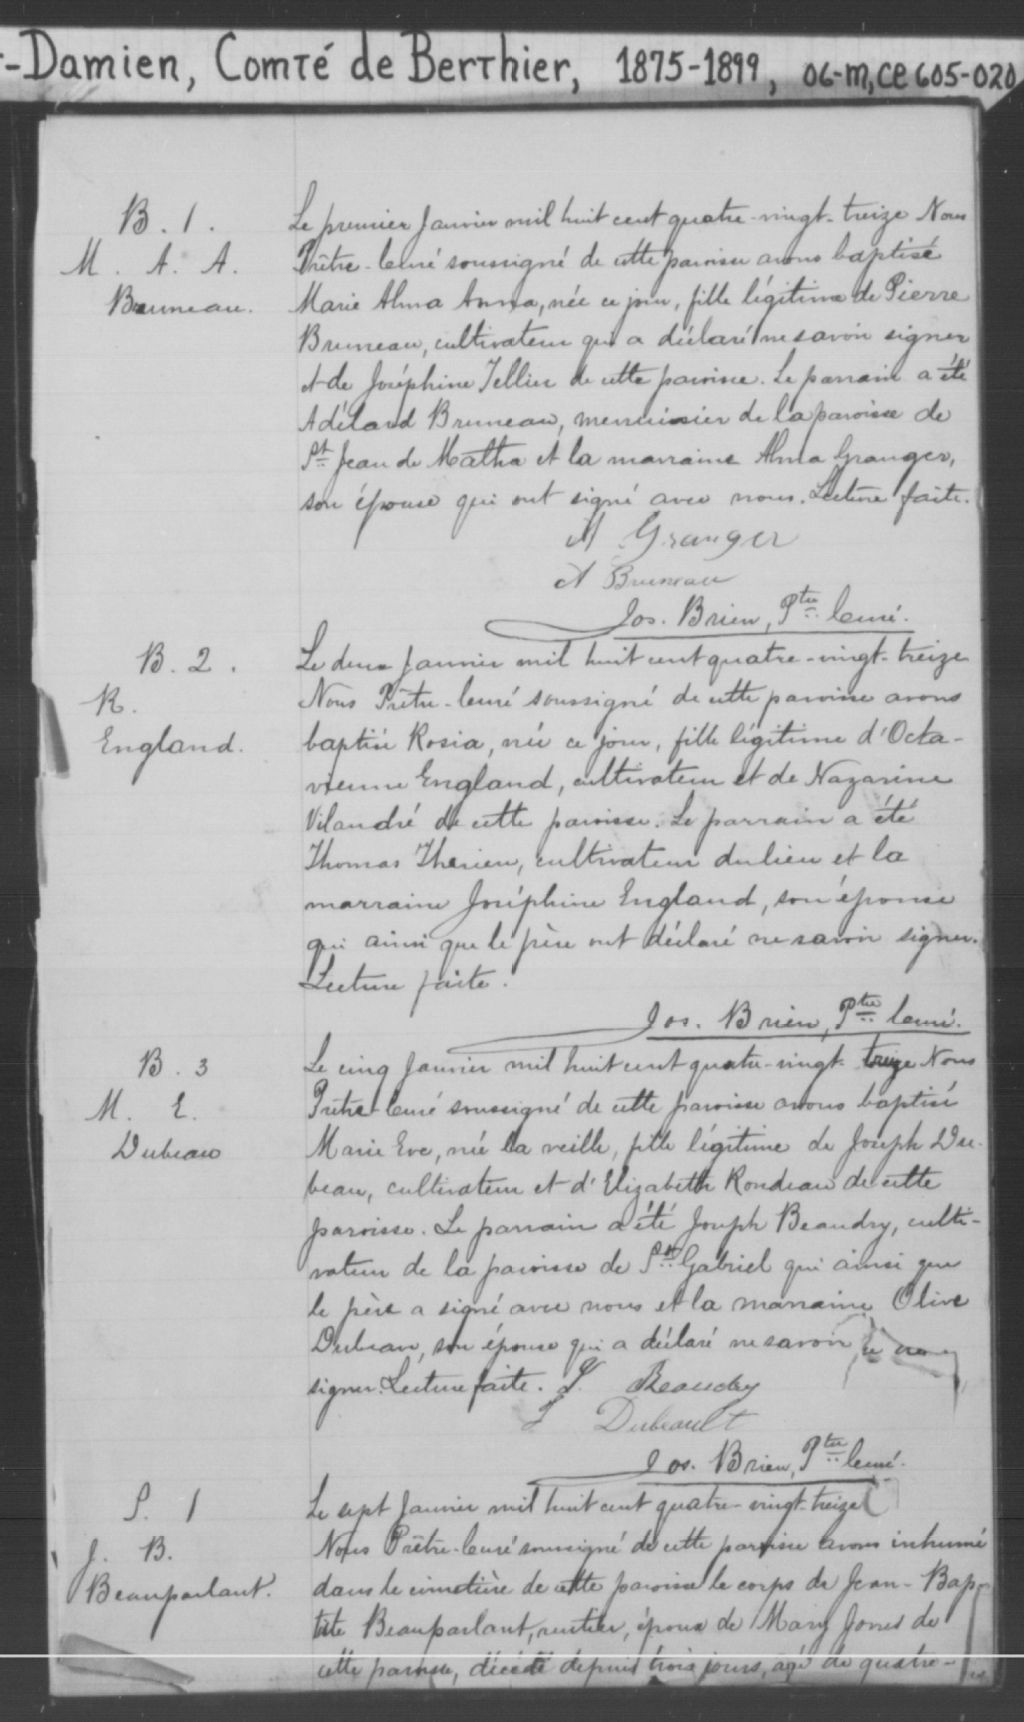 -Damien, Comté de Berthier, 1875-1899, 06-M,CE605-020
B. 1.
M. A. A.
Bruneau.
Le premier Janvier mil huit cent quatre-vingt-treize Nous
Prêtre-Curé soussigné de cette paroisse avons baptisé
Marie Alma Anna, née ce jour, fille légitime de Pierre
Bruneau, cultivateur qui a déclaré ne savoir signer
et de Joséphine Tellier de cette paroisse. Le parrain a été
Adélard Bruneau, menuisier de la paroisse de
St Jean de Matha et la marraine Alma Granger,
son épouse qui ont signé avec nous. Lecture faite.
A Granger
A Bruneau
Jos. Brien, Ptre Curé.
B. 2.
R.
England.
Le deux Janvier mil huit cent quatre-vingt-treize
Nous Prêtre-Curé soussigné de cette paroisse avons
baptisé Rosia, née ce jour, fille légitime d'Octa-
vienne England, cultivateur et de Nazarine
Vilandré de cette paroisse. Le parrain a été
Thomas Therien, cultivateur du lieu et la
marraine Joséphine England, son épouse
qui ainsi que le père ont déclaré ne savoir signer.
Lecture faite.
Jos. Brien, Ptre Curé.
B. 3
M. E.
Dubeau
Le cinq Janvier mil huit cent quatre-vingt-treize Nous
Prêtre-Curé soussigné de cette paroisse avons baptisé
Marie Eve, née la veille, fille légitime de Joseph Du-
beau, cultivateur et d'Elizabeth Rondeau de cette
paroisse. Le parrain a été Joseph Beaudry, culti-
vateur de la paroisse de St Gabriel qui ainsi que
le père a signé avec nous et la marraine Olive
Dubeau, son épouse qui a déclaré ne savoir
signer. Lecture faite. J. Beaudry
J Dubeault
Jos. Brien, Ptre Curé.
S. 1
J. B.
Beauparlant.
Le sept Janvier mil huit cent quatre-vingt-treize
Nous Prêtre-Curé soussigné de cette paroisse avons inhumé
dans le cimetière de cette paroisse le corps de Jean-Bap-
tiste Beauparlant, rentier, époux de Mary Jones de
cette paroisse, décédé depuis trois jours, agé de quatre-